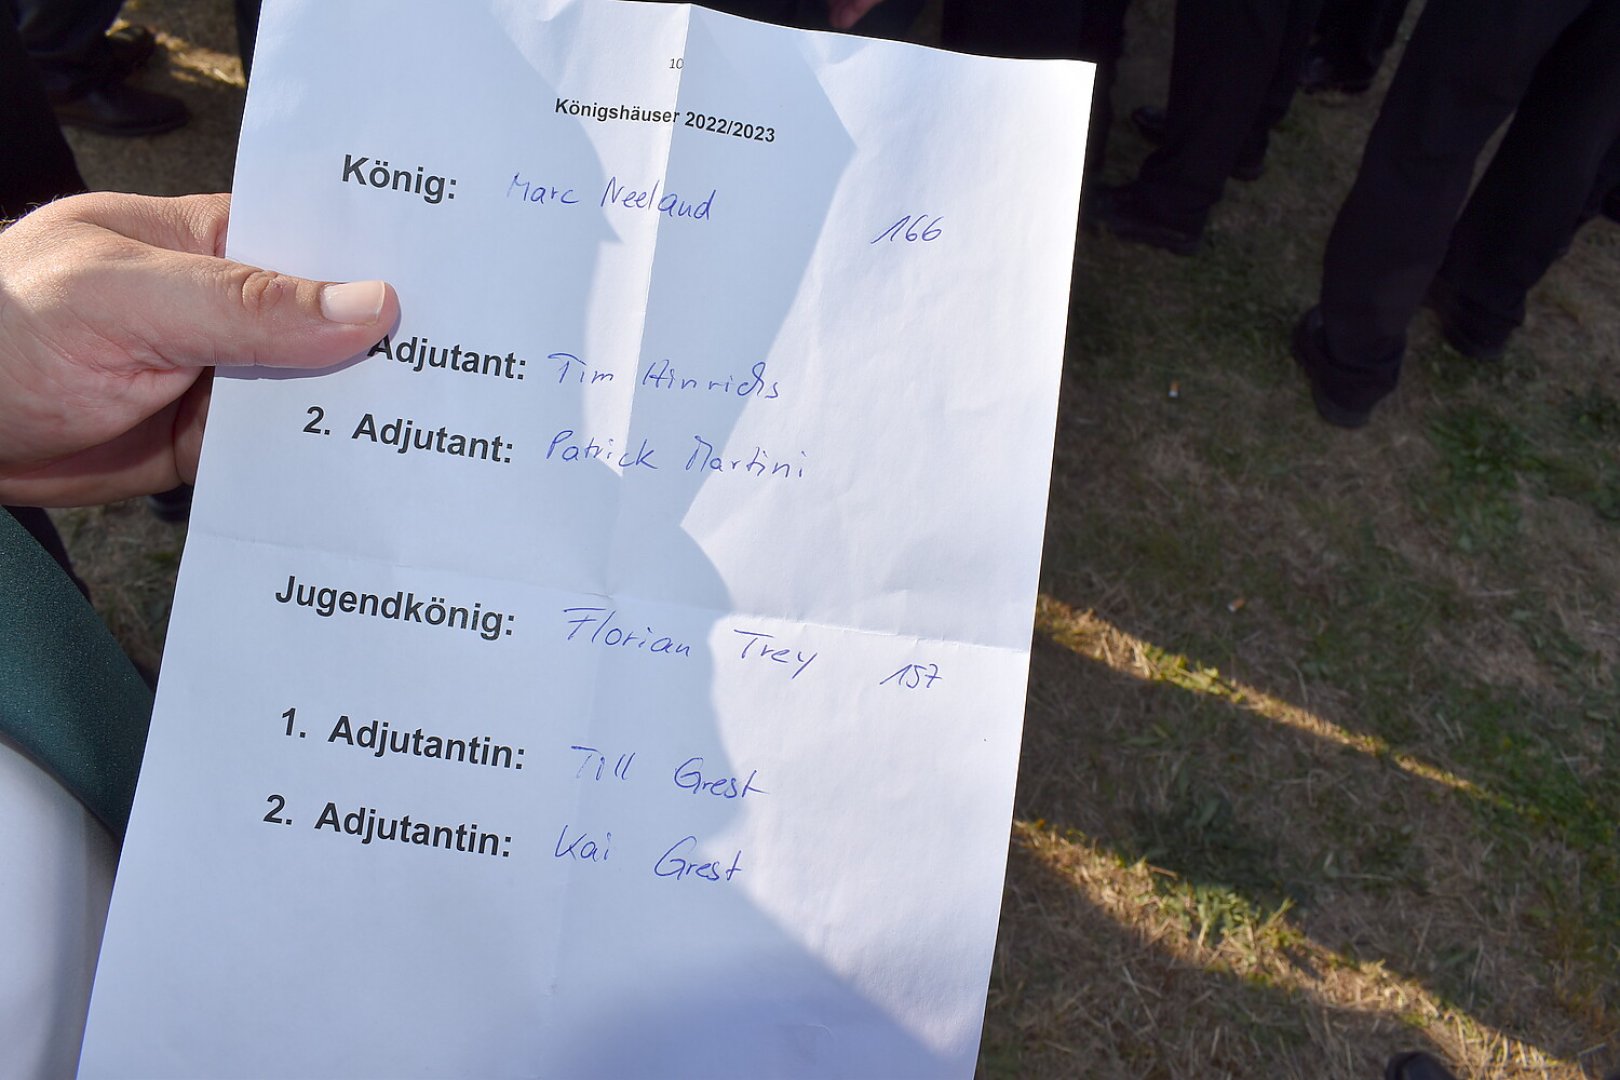 10
Königshäuser 2022/2023
König: Marc Neeland 166
Adjutant: Tim Hinrichs
2. Adjutant: Patrick Martini
Jugendkönig: Florian Trey 157
1. Adjutantin: Till Grest
2. Adjutantin: Kai Grest